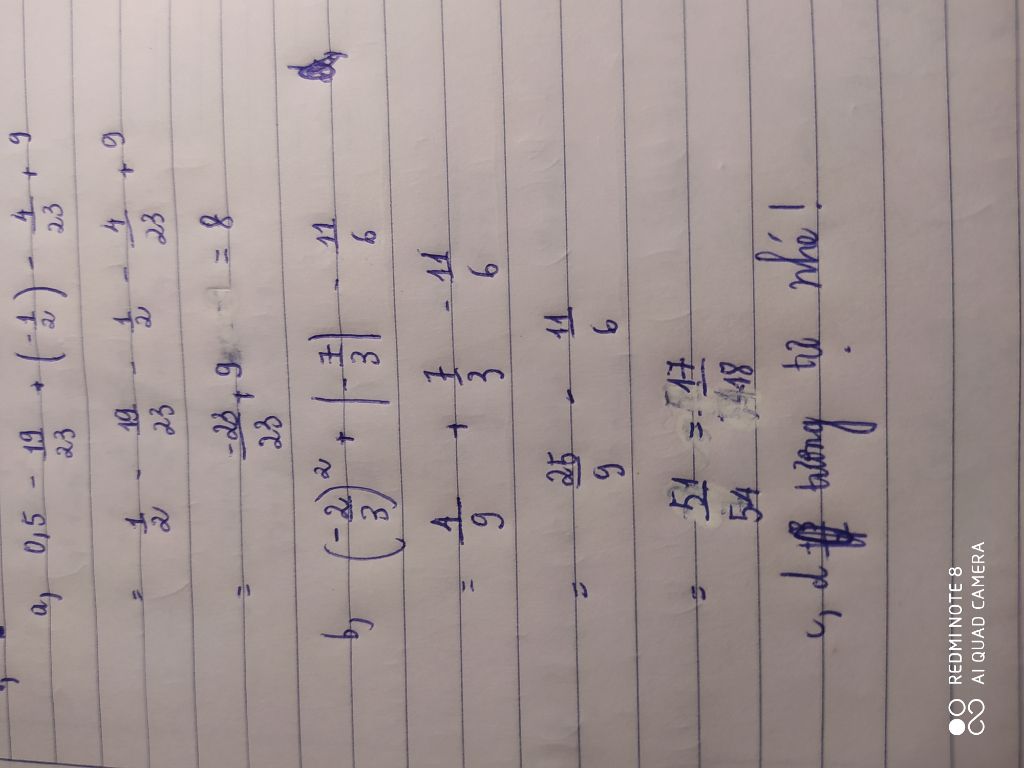 a, 0,5 - 19/23 + (-1/2) - 4/23 + 9
= 1/2 - 19/23 - 1/2 - 4/23 + 9
= -23/23 + 9 = 8
b, (-2/3)² + |-7/3| - 11/6
= 4/9 + 7/3 - 11/6
= 25/9 - 11/6
= 51/54 = 17/18
c, d trong tr nhé!
REDMI NOTE 8
AI QUAD CAMERA